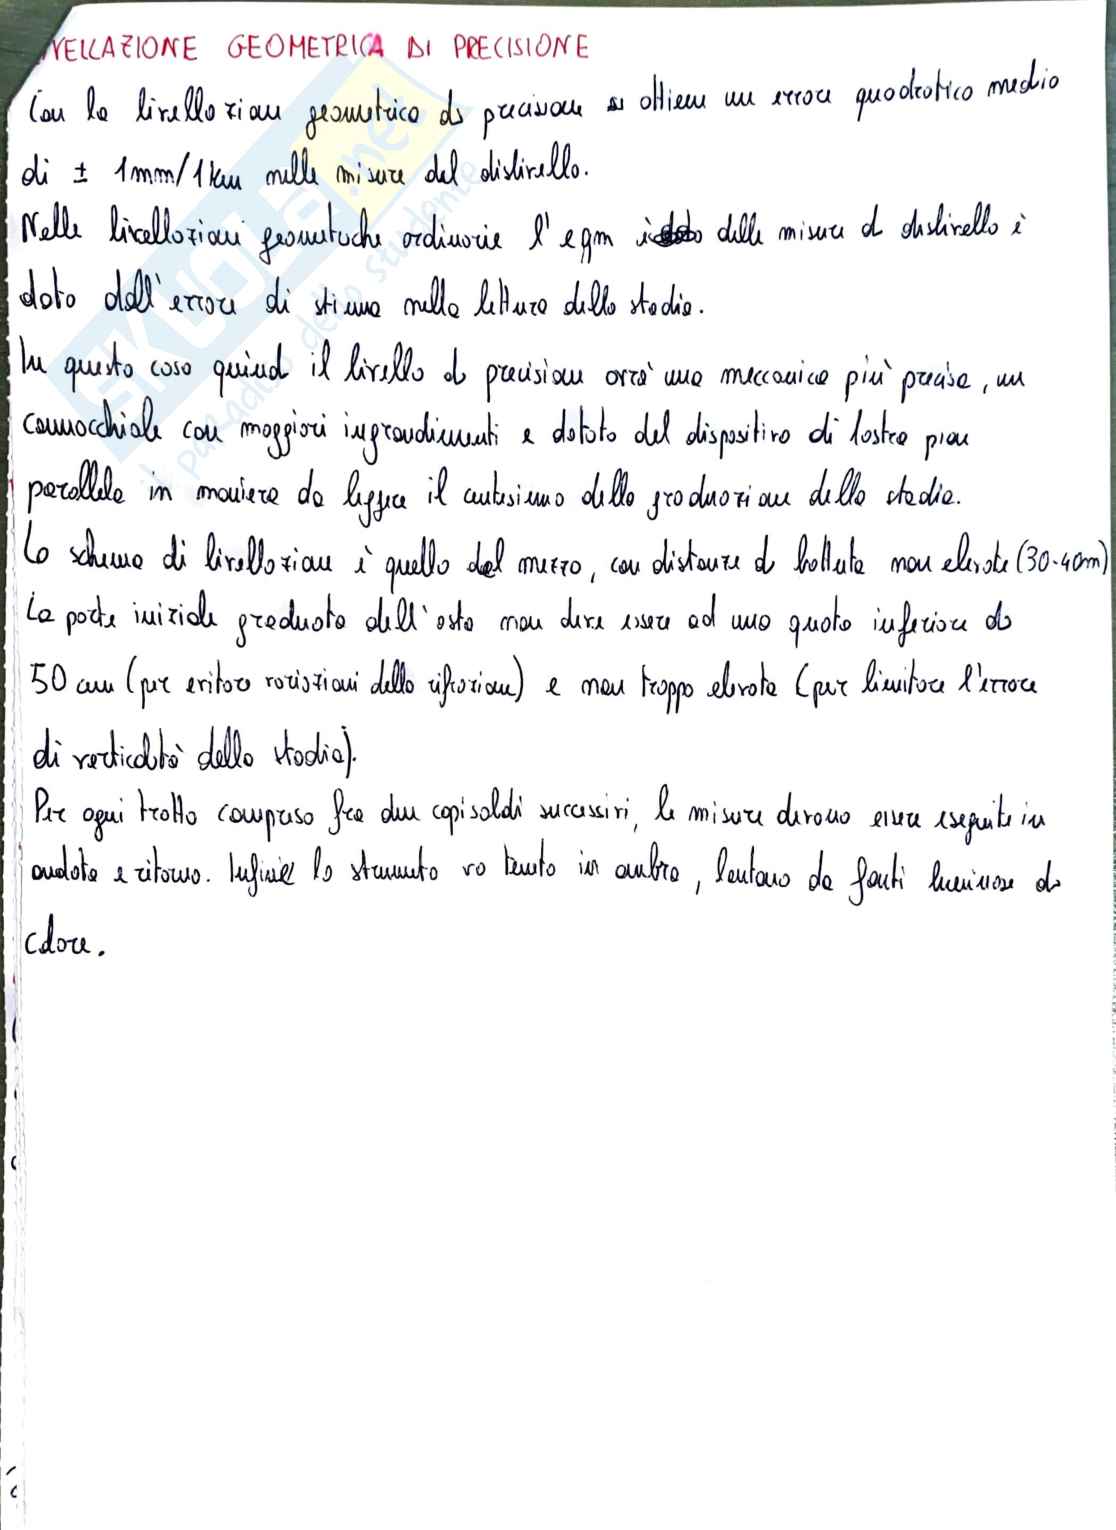 VELLAZIONE GEOMETRICA DI PRECISIONE
Con la livellazione geometrica di precisione si ottiene un errore quadratico medio
di ± 1mm/1km nelle misure del dislivello.
Nelle livellazioni geometriche ordinarie l'eqm delle misure di dislivello è
dato dall'errore di stima nella lettura della stadia.
In questo caso quindi il livello di precisione avrà una meccanica più precisa, un
cannocchiale con maggiori ingrandimenti e dotato del dispositivo di lastra pian
parallela in maniera da leggere il centesimo della graduazione della stadia.
Lo schema di livellazione è quello dal mezzo, con distanze di battuta non elevate (30-40m)
La parte iniziale graduata dell'asta non deve essere ad una quota inferiore di
50 cm (per evitare variazioni della rifrazione) e non troppo elevata (per limitare l'errore
di verticalità della stadia).
Per ogni tratto compreso fra due capisaldi successivi, le misure devono essere eseguite in
andata e ritorno. Infine lo strumento va tenuto in ombra, lontano da fonti luminose di
calore.
SKUOLA.net
il paradiso dello studente